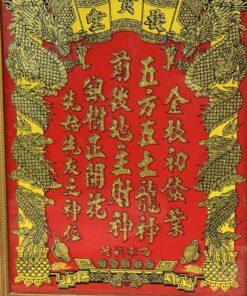 聚寶堂
金枝初發葉
五方五土龍神
前後地主財神
銀樹正開花
先好先友之神位